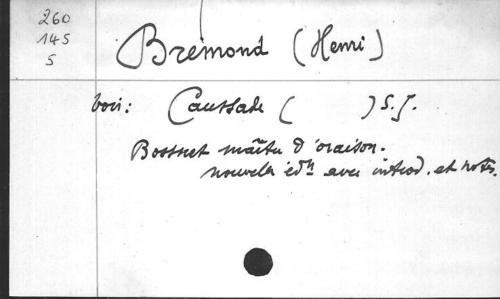 260
145
5
Bremond (Henri)
voir: Caussade ( ) S.J.
Bossuet maître d'oraison.
nouvelle édn avec introd. et notes.